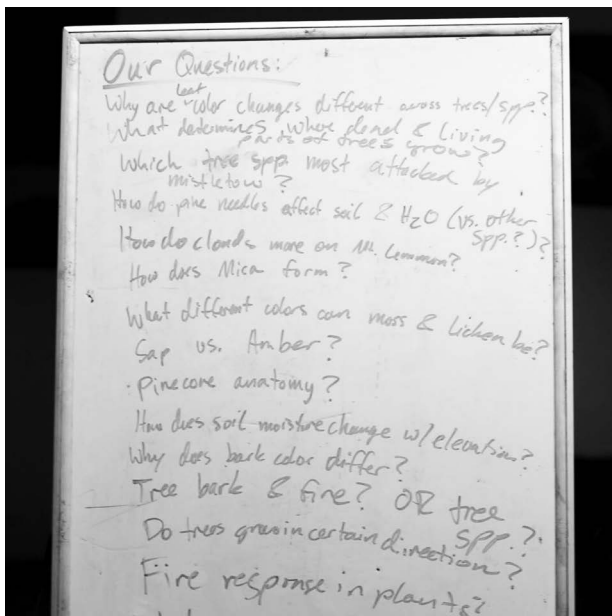 Our Questions:
Why are leaf color changes different across trees/spp.?
What determines where dead & living
parts of trees grow?
Which tree spp. most attacked by
mistletow?
How do pine needles affect soil & H2O (vs. other
spp.?)?
How do clouds move on Mt. Lemmon?
How does Mica form?
What different colors can moss & lichen be?
Sap vs. Amber?
Pinecone anatomy?
How does soil moisture change w/ elevation?
Why does bark color differ?
Tree bark & fire? OR tree
spp.?
Do trees grow in certain direction?
Fire response in plants?